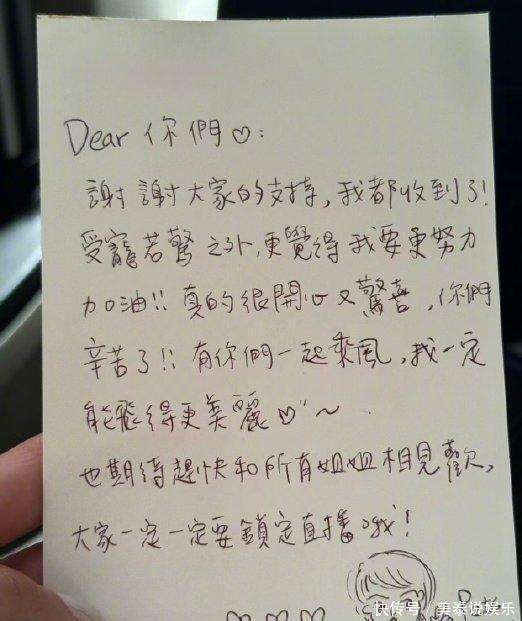 Dear 你們♡:
謝謝大家的支持,我都收到了!
受寵若驚之外,更覺得我要更努力
加油!! 真的很開心又驚喜,你們
辛苦了!! 有你們一起乘風,我一定
能飛得更美麗♡~
也期待趕快和所有姐姐相見歡,
大家一定一定要鎖定直播哦!
快传号/美泰说娱乐